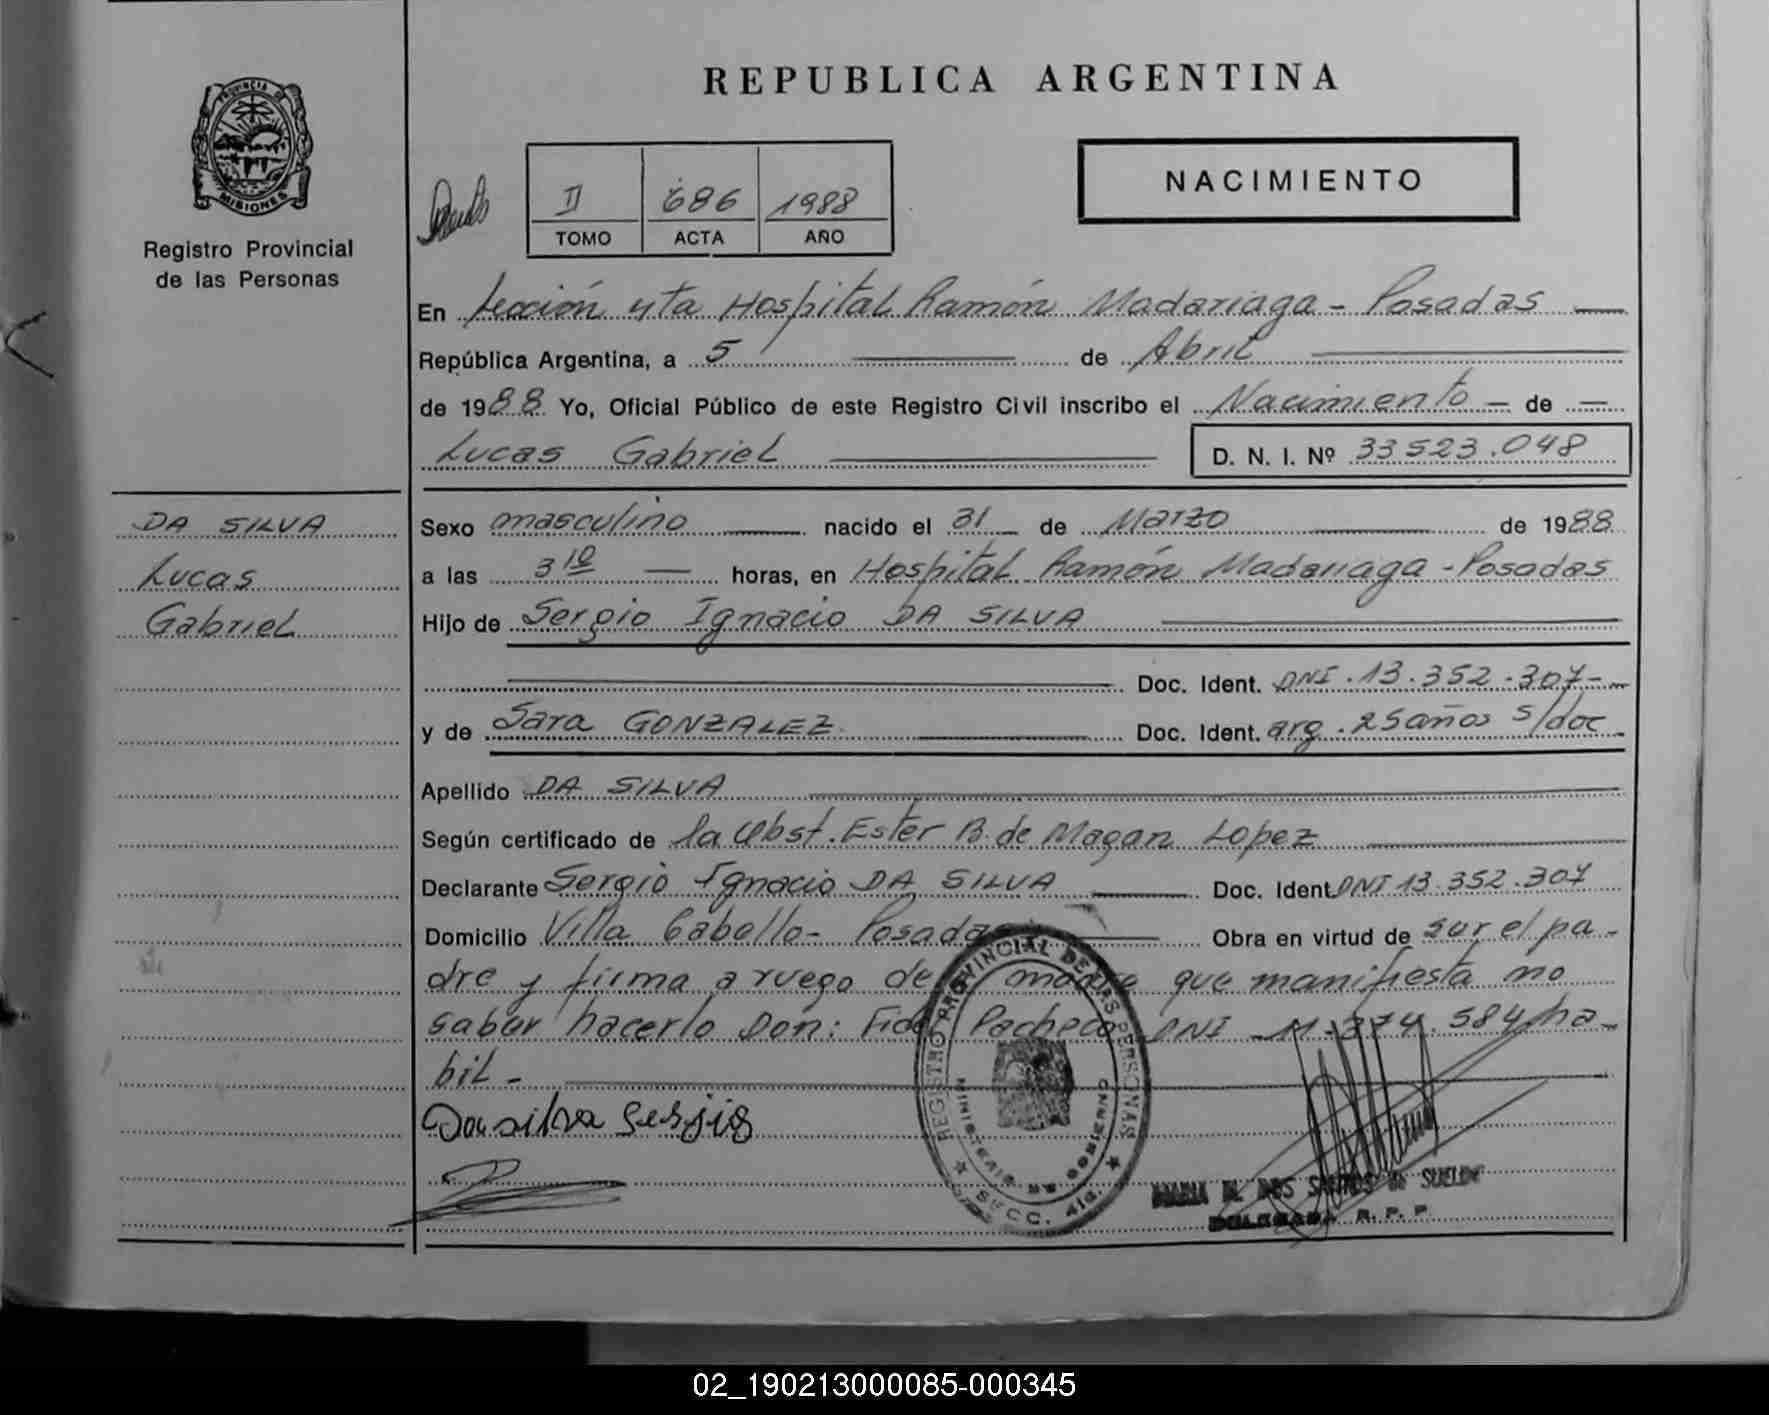 REPUBLICA ARGENTINA
PROVINCIA DE
MISIONES
Registro Provincial
de las Personas
II 686 1988
TOMO ACTA AÑO
NACIMIENTO
En Sección 4ta Hospital Ramón Madariaga - Posadas
República Argentina, a 5 de Abril
de 1988 Yo, Oficial Público de este Registro Civil inscribo el Nacimiento - de -
Lucas Gabriel D. N. I. Nº 33523.048
DA SILVA
Lucas
Gabriel
Sexo masculino nacido el 31 de Marzo de 1988
a las 3 10 horas, en Hospital Ramón Madariaga - Posadas
Hijo de Sergio Ignacio DA SILVA
Doc. Ident. DNI. 13.352.307-
y de Sara GONZALEZ. Doc. Ident. arg. 25 años s/doc
Apellido DA SILVA
Según certificado de la Obst. Ester B. de Magan Lopez
Declarante Sergio Ignacio DA SILVA Doc. Ident DNI 13.352.307
Domicilio Villa Cabello- Posadas Obra en virtud de ser el pa-
dre y firma a ruego de madre que manifiesta no
saber hacerlo Don: Fidel Pacheco DNI 11.374.584 ha-
bil -
Da silva Sergio
REGISTRO PROVINCIAL DE LAS PERSONAS
MINISTERIO DE GOBIERNO
SUCC. 4ta.
MARIA DOS SANTOS DE
DELEGADA R. P. P.
02_190213000085-000345